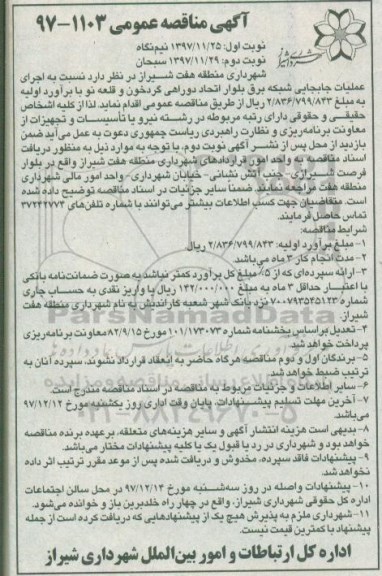 آگهی مناقصه عمومی ۱۱۰۳-۹۷
نوبت اول: ۱۳۹۷/۱۱/۲۵ نیم‌نگاه
نوبت دوم: ۱۳۹۷/۱۱/۲۹ سبحان
شهرداری منطقه هفت شیراز در نظر دارد نسبت به اجرای
عملیات جابجایی شبکه برق بلوار اتحاد دوراهی گردخون و قلعه نو با برآورد اولیه
به مبلغ ۲/۸۳۶/۷۹۹/۸۳۳ ریال از طریق مناقصه عمومی اقدام نماید. لذا از کلیه اشخاص
حقیقی و حقوقی دارای رتبه مربوطه در رشته نیرو یا تأسیسات و تجهیزات از
معاونت برنامه‌ریزی و نظارت راهبردی ریاست جمهوری دعوت به عمل می‌آید ضمن
بازدید از محل پس از نشر آگهی نوبت دوم، با توجه به موارد ذیل به منظور دریافت
اسناد مناقصه به واحد امور قراردادهای شهرداری منطقه هفت شیراز واقع در بلوار
فرصت شیرازی- جنب آتش نشانی- خیابان شهرداری- واحد امور مالی شهرداری
منطقه هفت مراجعه نمایند. ضمناً سایر جزئیات در اسناد مناقصه توضیح داده شده
است. متقاضیان جهت کسب اطلاعات بیشتر می‌توانند با شماره تلفن‌های ۳۷۲۴۲۷۷۳
تماس حاصل فرمایند.
شرایط مناقصه:
۱- مبلغ برآورد اولیه: ۲/۸۳۶/۷۹۹/۸۳۳ ریال
۲- مدت انجام کار ۳ ماه می‌باشد.
۳- ارائه سپرده‌ای که از ۵٪ مبلغ کل برآورد کمتر نباشد به صورت ضمانت‌نامه بانکی
با اعتبار حداقل ۳ ماه به مبلغ ۱۴۲/۰۰۰/۰۰۰ ریال یا واریز نقدی به حساب جاری
شماره ۷۰۰۷۹۳۵۴۵۱۲۳ نزد بانک شهر شعبه کاراندیش به نام شهرداری منطقه هفت
شیراز.
۴- تعدیل بر اساس بخشنامه شماره ۱۰۱/۱۷۳۰۷۳ مورخ ۸۲/۹/۱۵ معاونت برنامه‌ریزی
پرداخت خواهد شد.
۵- برندگان اول و دوم مناقصه هرگاه حاضر به انعقاد قرارداد نشوند، سپرده آنان به
ترتیب ضبط خواهد شد.
۶- سایر اطلاعات و جزئیات مربوط به مناقصه در اسناد مناقصه مندرج است.
۷- آخرین مهلت تسلیم پیشنهادات، پایان وقت اداری روز یکشنبه مورخ ۹۷/۱۲/۱۲
می‌باشد.
۸- بدیهی است هزینه انتشار آگهی و سایر هزینه‌های متعلقه، بر عهده برنده مناقصه
خواهد بود و شهرداری در رد یا قبول یک یا کلیه پیشنهادات مختار می‌باشد.
۹- پیشنهادات فاقد سپرده، مخدوش و دریافت شده پس از موعد مقرر ترتیب اثر داده
نخواهد شد.
۱۰- پیشنهادات واصله در روز سه‌شنبه مورخ ۹۷/۱۲/۱۴ در محل سالن اجتماعات
اداره کل حقوقی شهرداری شیراز، واقع در چهار راه خلدبرین باز و خوانده می‌شود.
۱۱- شهرداری ملزم به پذیرش هیچ یک از پیشنهادهایی که دریافت کرده است از جمله
پیشنهاد با کمترین قیمت نیست.
اداره کل ارتباطات و امور بین‌الملل شهرداری شیراز
ParsNamadData